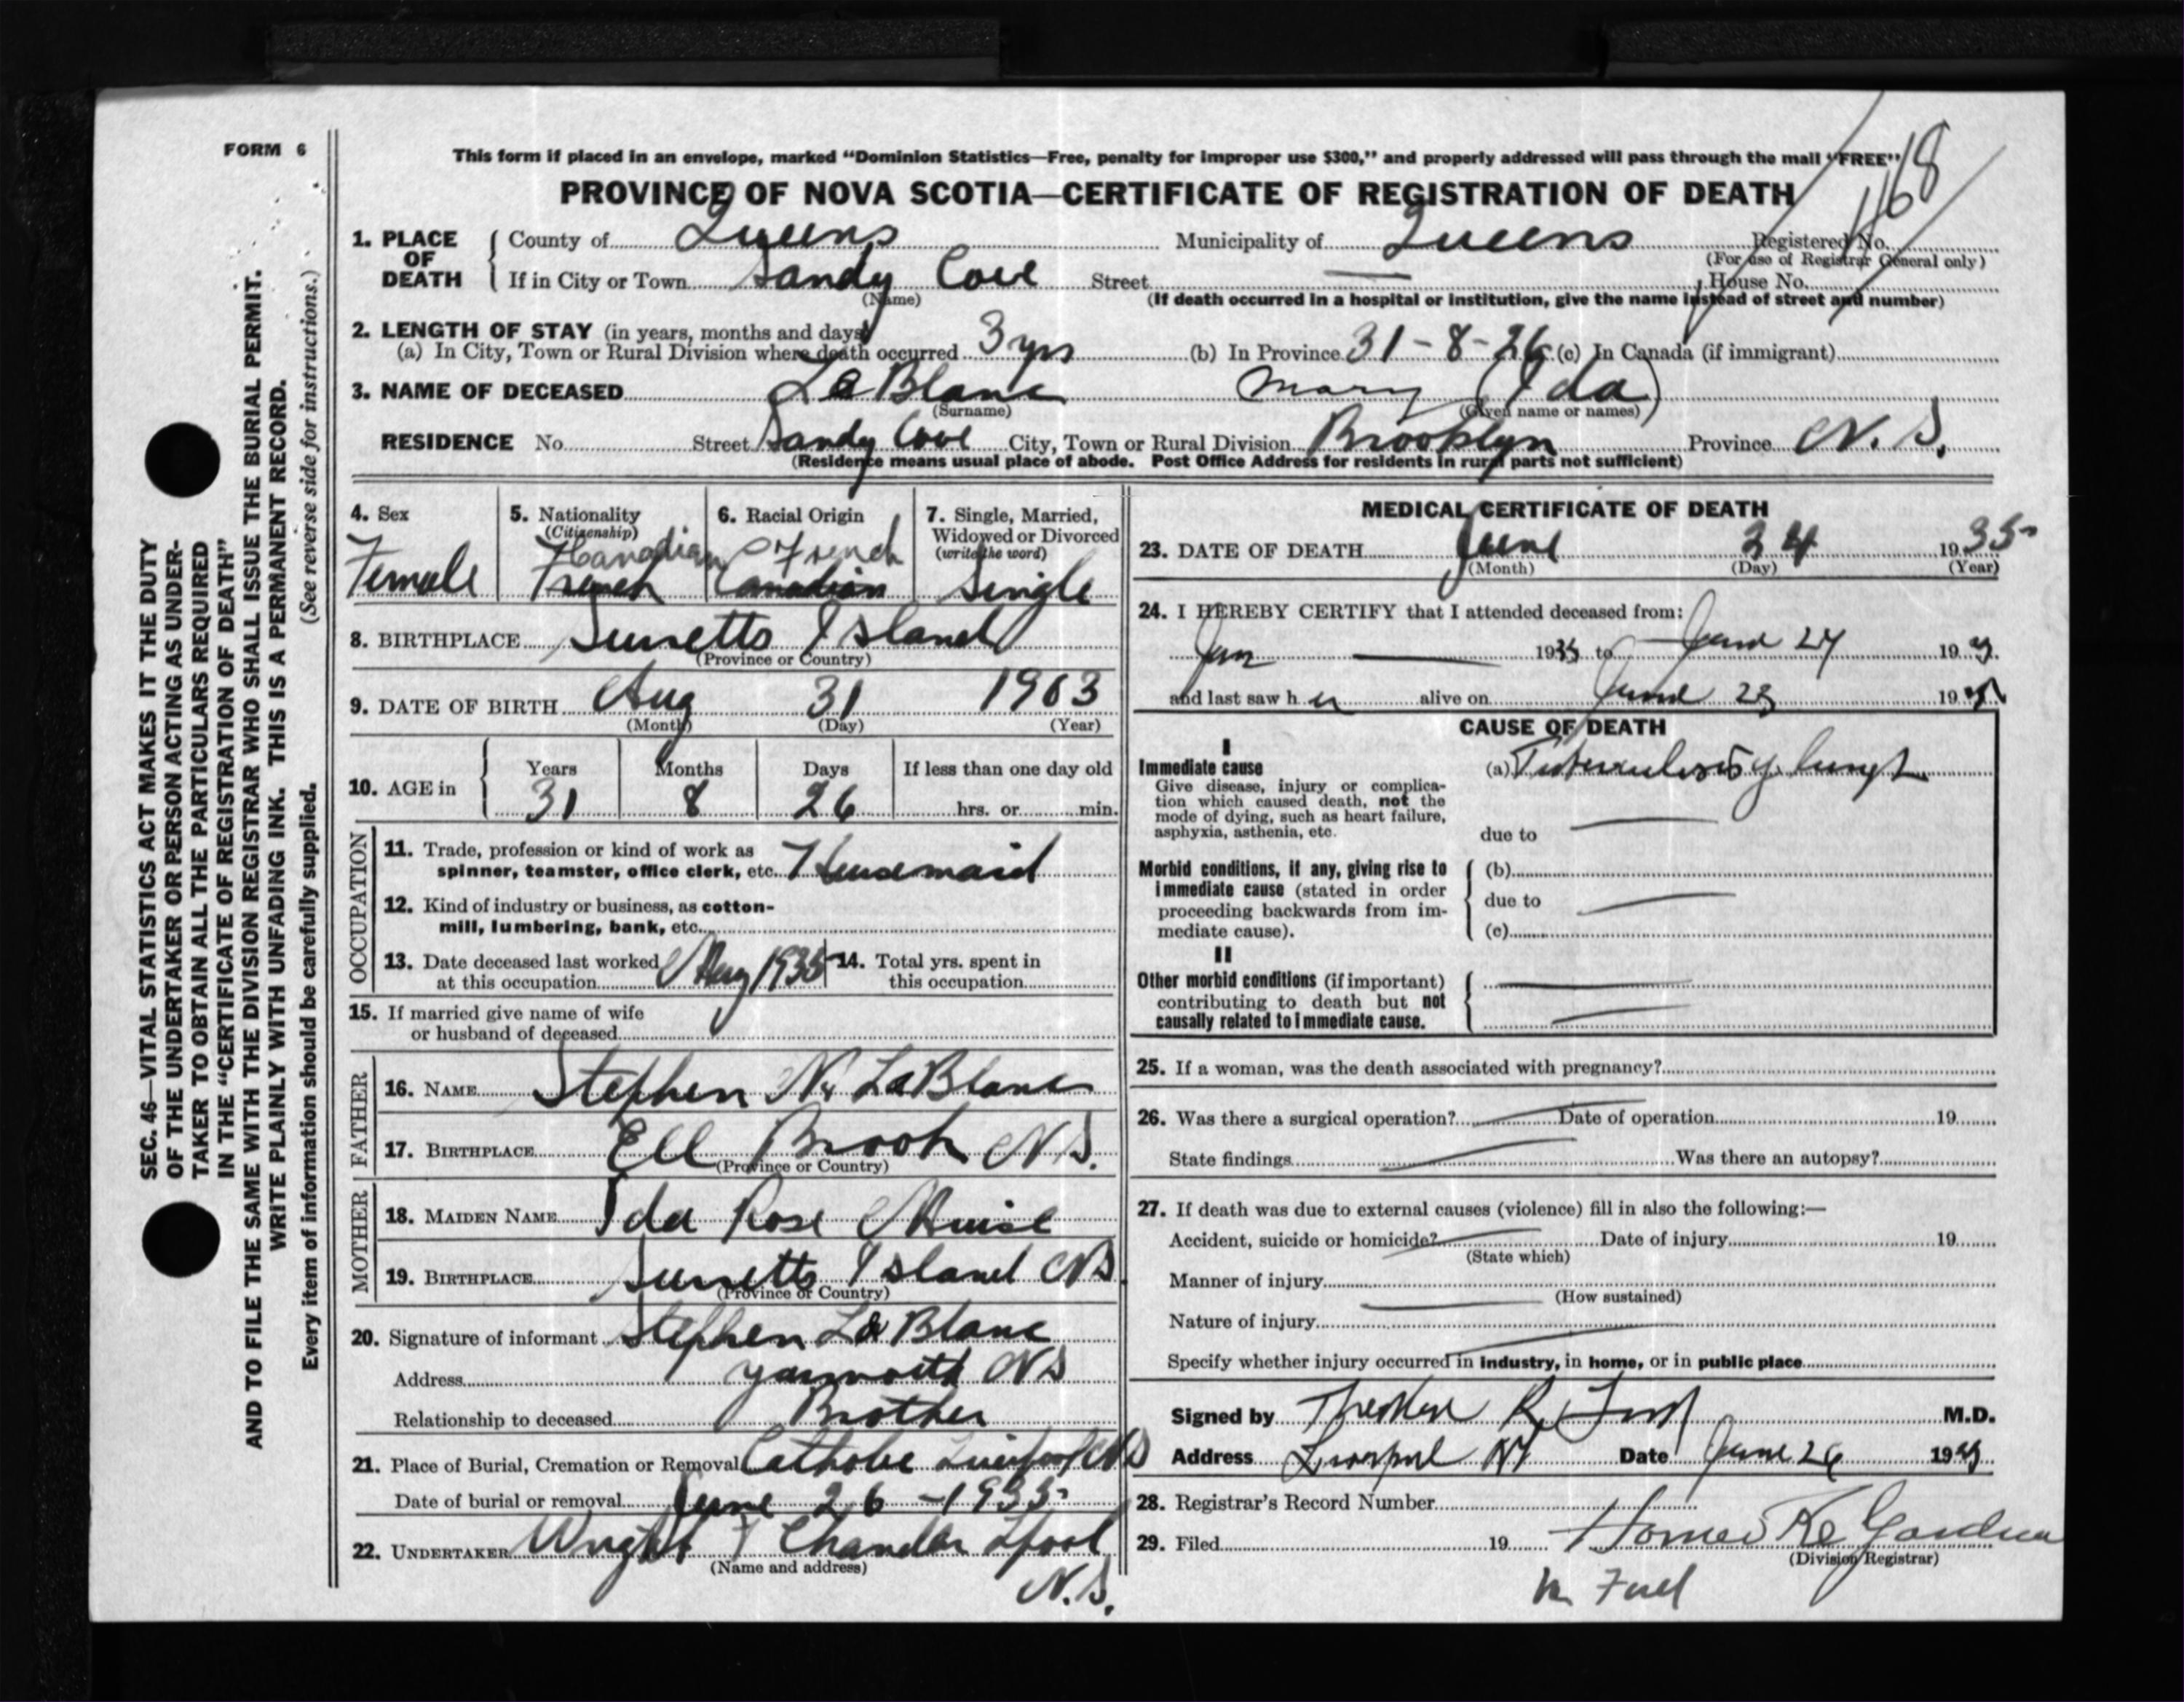 FORM 6
This form if placed in an envelope, marked “Dominion Statistics—Free, penalty for improper use $300,” and properly addressed will pass through the mail “FREE”
1168
PROVINCE OF NOVA SCOTIA—CERTIFICATE OF REGISTRATION OF DEATH
1. PLACE OF DEATH { County of Queens Municipality of Queens Registered No.
(For use of Registrar General only)
If in City or Town Sandy Cove Street — House No.
(Name) (If death occurred in a hospital or institution, give the name instead of street and number)
2. LENGTH OF STAY (in years, months and days)
(a) In City, Town or Rural Division where death occurred 3 yrs (b) In Province 31-8-26 (c) In Canada (if immigrant)
3. NAME OF DECEASED LeBlanc Mary (Ida)
(Surname) (Given name or names)
RESIDENCE No. Street Sandy Cove City, Town or Rural Division Brooklyn Province N.S.
(Residence means usual place of abode. Post Office Address for residents in rural parts not sufficient)
4. Sex 5. Nationality 6. Racial Origin 7. Single, Married,
(Citizenship) Widowed or Divorced
(write the word)
Canadian French
Female French Canadian Single
8. BIRTHPLACE Surretts Island
(Province or Country)
9. DATE OF BIRTH Aug 31 1903
(Month) (Day) (Year)
10. AGE in { Years Months Days If less than one day old
31 8 26 hrs. or min.
OCCUPATION
11. Trade, profession or kind of work as
spinner, teamster, office clerk, etc. Housemaid
12. Kind of industry or business, as cotton-
mill, lumbering, bank, etc.
13. Date deceased last worked 14. Total yrs. spent in
at this occupation 1935 this occupation
15. If married give name of wife
or husband of deceased
FATHER
16. NAME Stephen N. LeBlanc
17. BIRTHPLACE Ell Brook N.S.
(Province or Country)
MOTHER
18. MAIDEN NAME Ida Rose Muise
19. BIRTHPLACE Surretts Island NS.
(Province or Country)
20. Signature of informant Stephen LeBlanc
Address Yarmouth NS
Relationship to deceased Brother
21. Place of Burial, Cremation or Removal Catholic Liverpool NS
Date of burial or removal June 26 - 1935
22. UNDERTAKER Wright & Chandler Lpool
(Name and address)
N.S.
MEDICAL CERTIFICATE OF DEATH
23. DATE OF DEATH June 24 1935
(Month) (Day) (Year)
24. I HEREBY CERTIFY that I attended deceased from:
Jan — 1935 to June 24 19
and last saw her alive on June 23 19
CAUSE OF DEATH
I
Immediate cause (a) Tuberculosis of lungs
Give disease, injury or complica-
tion which caused death, not the
mode of dying, such as heart failure,
asphyxia, asthenia, etc. due to
Morbid conditions, if any, giving rise to (b)
immediate cause (stated in order due to
proceeding backwards from im-
mediate cause). (c)
II
Other morbid conditions (if important)
contributing to death but not
causally related to immediate cause.
25. If a woman, was the death associated with pregnancy?
26. Was there a surgical operation? Date of operation 19
State findings Was there an autopsy?
27. If death was due to external causes (violence) fill in also the following:—
Accident, suicide or homicide? Date of injury 19
(State which)
Manner of injury
(How sustained)
Nature of injury
Specify whether injury occurred in industry, in home, or in public place
Signed by R. Ford M.D.
Address Liverpool NS Date June 26 19
28. Registrar's Record Number
29. Filed 19 Homer
(Division Registrar)
SEC. 46—VITAL STATISTICS ACT MAKES IT THE DUTY
OF THE UNDERTAKER OR PERSON ACTING AS UNDER-
TAKER TO OBTAIN ALL THE PARTICULARS REQUIRED
IN THE “CERTIFICATE OF REGISTRATION OF DEATH”
AND TO FILE THE SAME WITH THE DIVISION REGISTRAR WHO SHALL ISSUE THE BURIAL PERMIT.
WRITE PLAINLY WITH UNFADING INK. THIS IS A PERMANENT RECORD.
Every item of information should be carefully supplied. (See reverse side for instructions.)